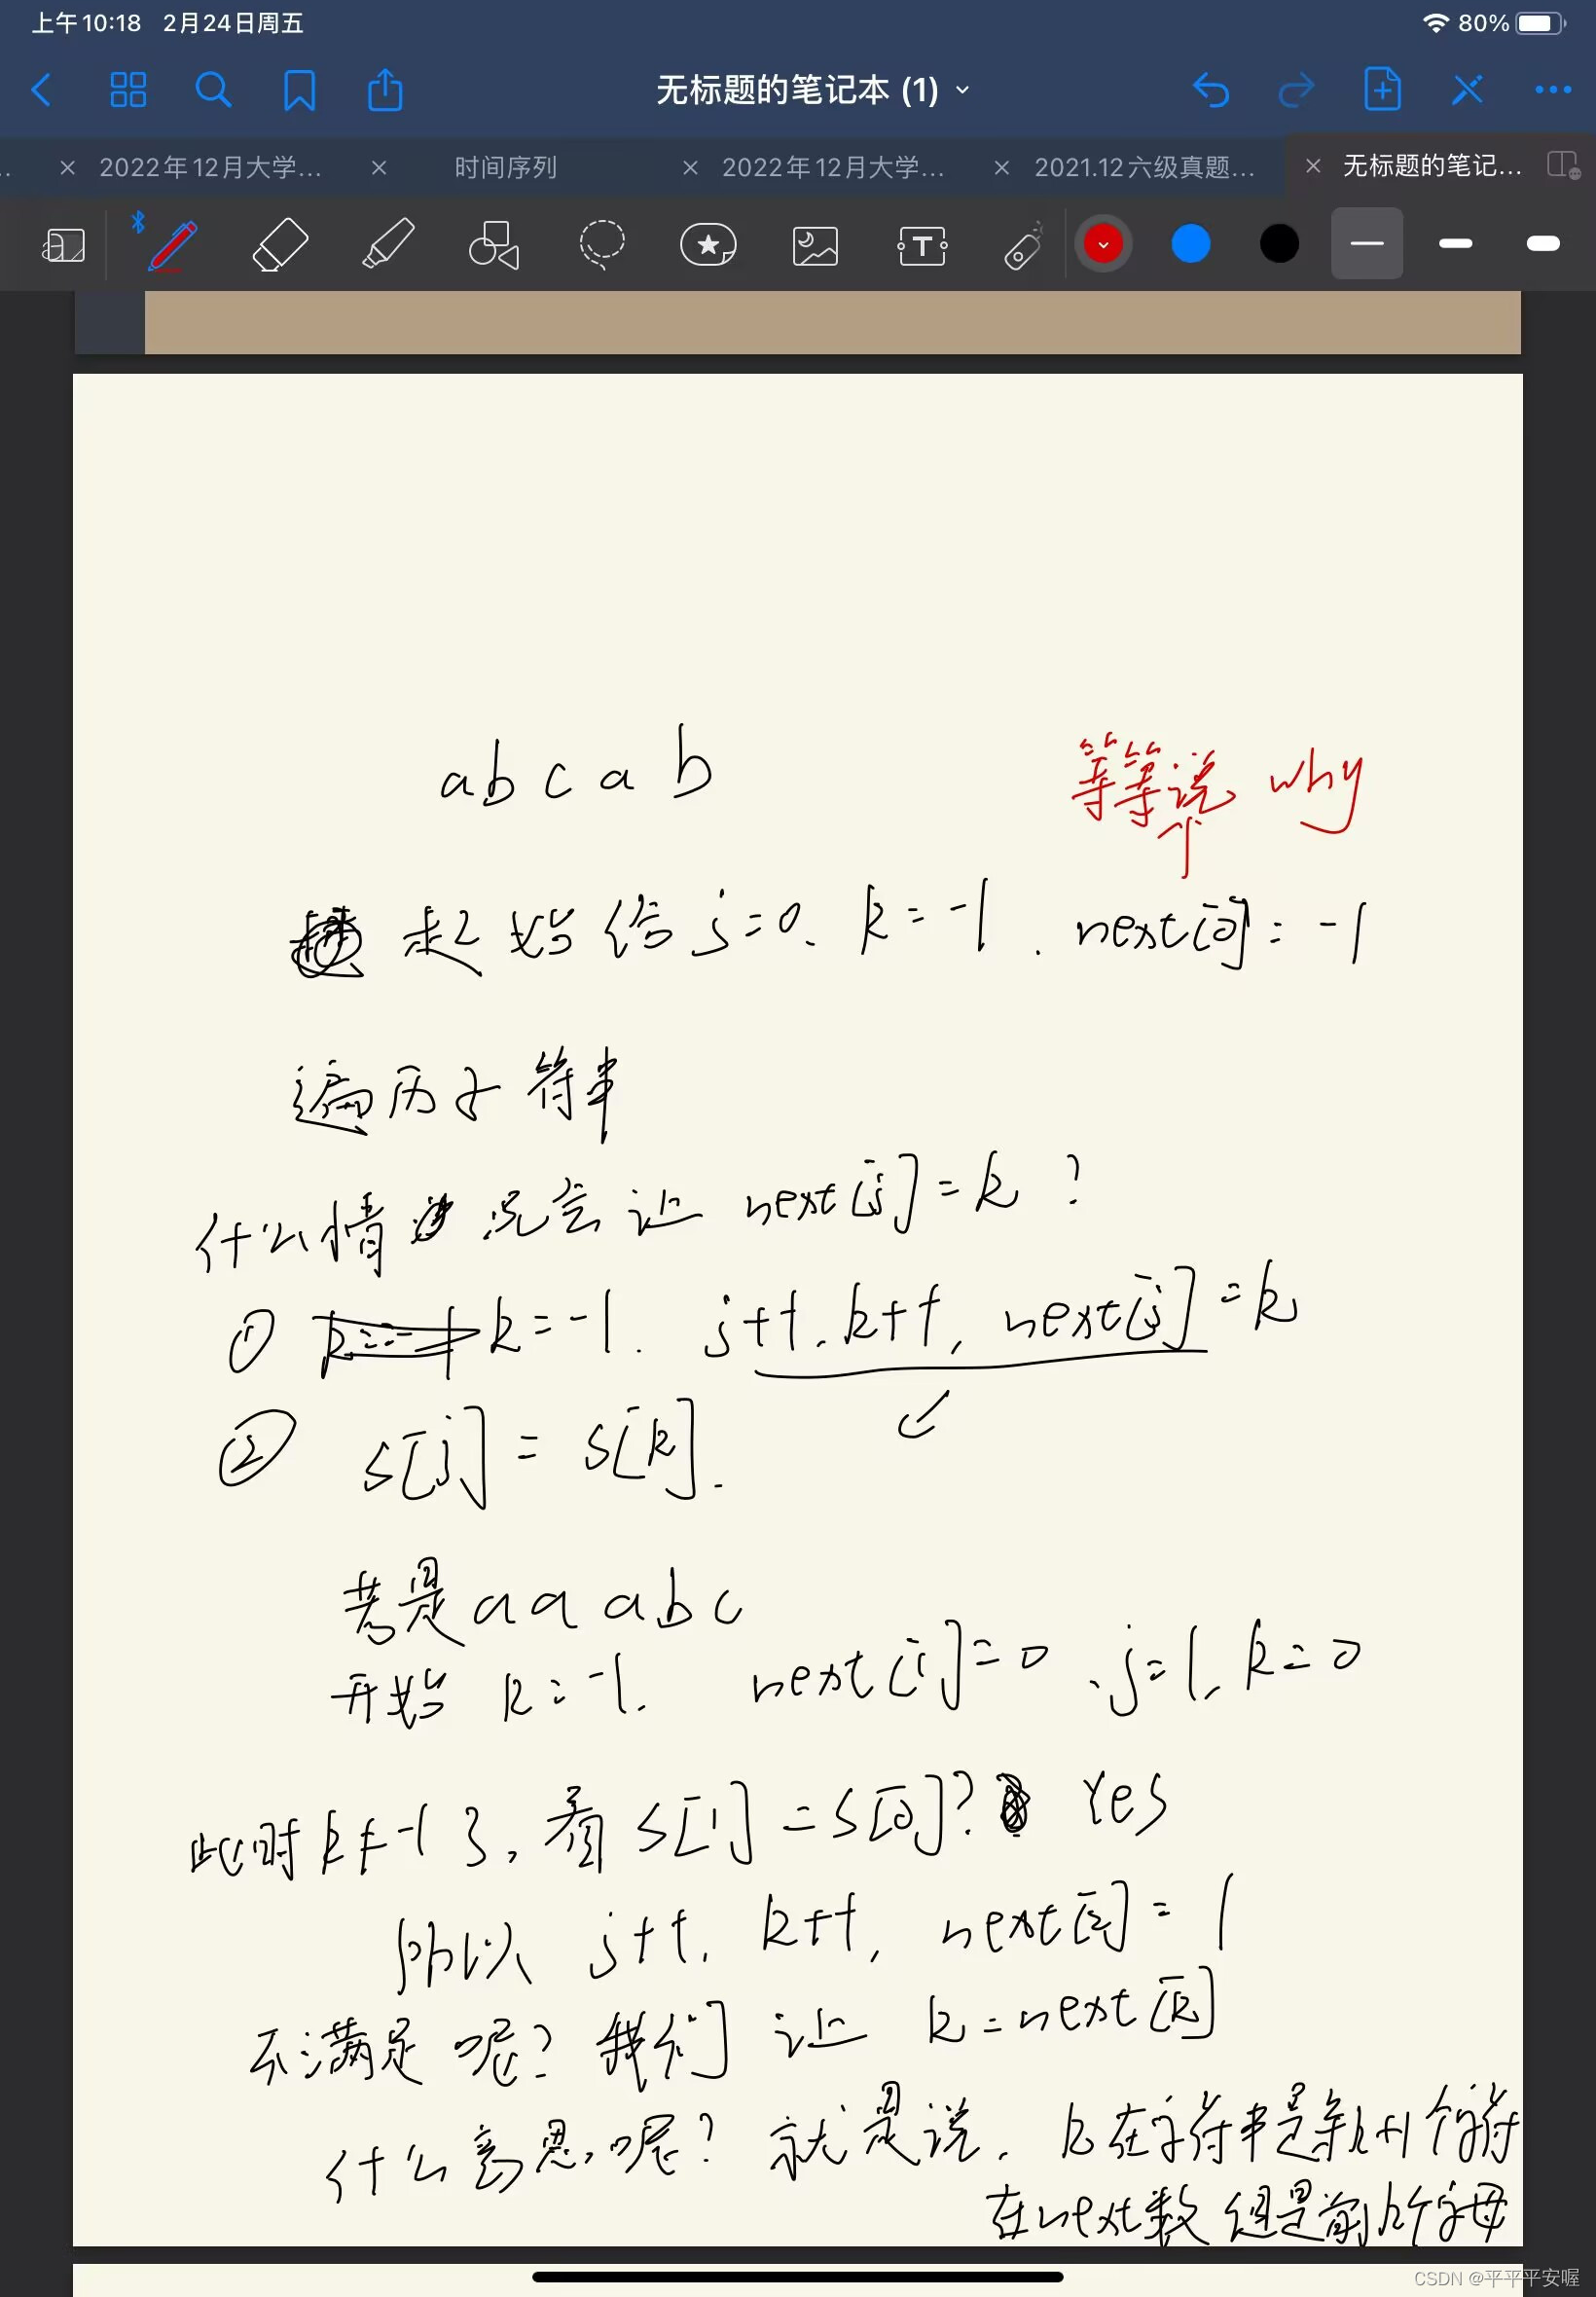 上午10:18 2月24日周五 80%
无标题的笔记本 (1)
2022年12月大学... 时间序列 2022年12月大学... 2021.12六级真题... 无标题的笔记...
abcab 等等说 why
起始给 j=0. k=-1. next[0]=-1
遍历子符串
什么情况会让 next[j]=k ?
① k=-1. j++. k++, next[j]=k
② s[j] = s[k].
若是 aaabc
开始 k=-1. next[1]=0 .j=1, k=0
此时k≠-1了, 看s[1]=s[0]? Yes
所以 j++. k++, next[2]=1
不满足呢? 我们让 k=next[k]
什么意思呢? 就是说. k在字符串是第k+1个字符
在next数组是前k个字母
CSDN @平平平安喔